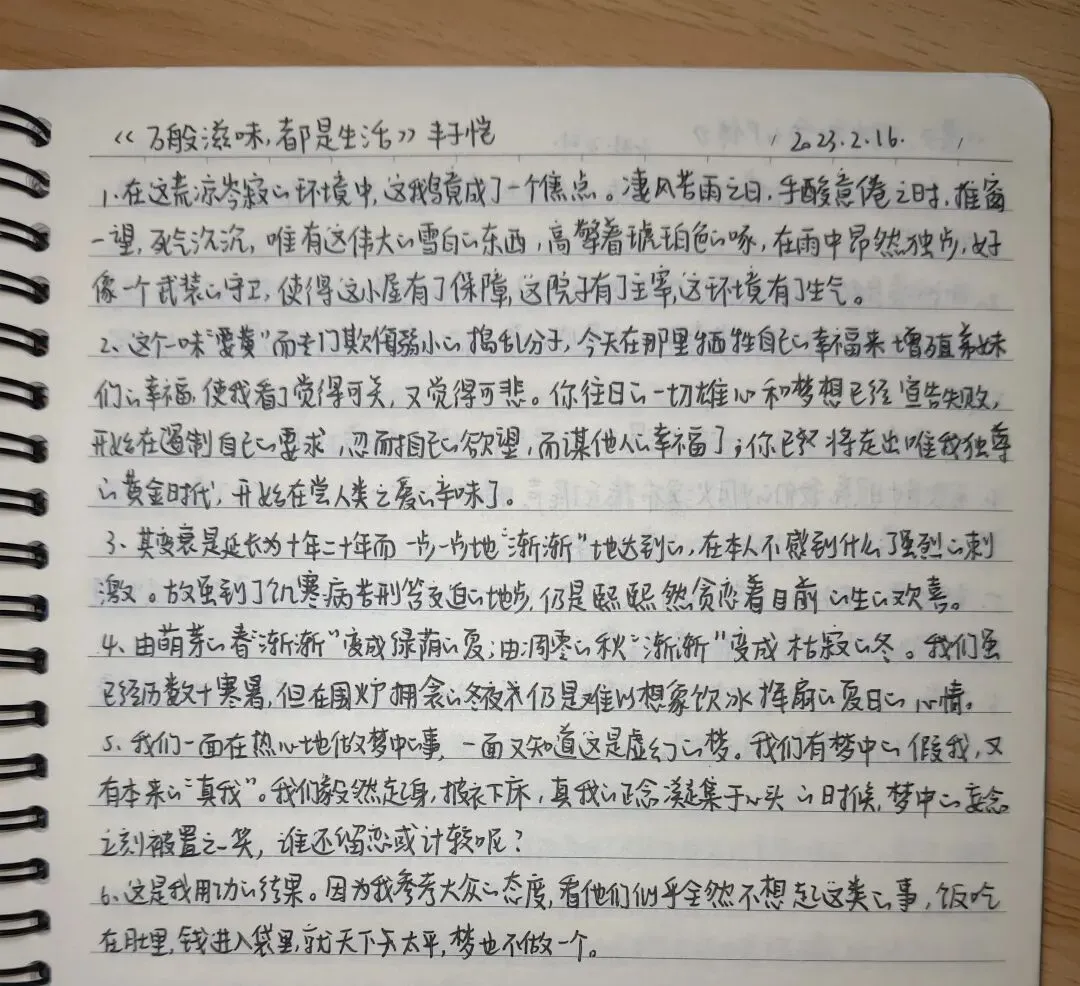 《万般滋味,都是生活》丰子恺 2023.2.16.
1、在这荒凉岑寂的环境中,这鹅竟成了一个焦点。凄风苦雨之日,手酸意倦之时,推窗
一望,死气沉沉,唯有这伟大的雪白的东西,高擎着琥珀色的喙,在雨中昂然独步,好
像一个武装的守卫,使得这小屋有了保障,这院子有了主宰,这环境有了生气。
2、这个一味"要黄"而专门欺侮弱小的捣乱分子,今天在那里牺牲自己的幸福来增殖弟妹
们的幸福,使我看了觉得可笑,又觉得可悲。你往日的一切雄心和梦想已经宣告失败,
开始在遏制自己的要求,忍耐自己的欲望,而谋他人的幸福了;你已经将走出唯我独尊
的黄金时代,开始在尝人类之爱的辛味了。
3、其变衰是延长为十年二十年而一步一步地"渐渐"地达到的,在本人不感到什么强烈的刺
激。故虽到了饥寒病苦刑笞交迫的地步,仍是熙熙然贪恋着目前的生的欢喜。
4、由萌芽的春"渐渐"变成绿荫的夏;由凋零的秋"渐渐"变成枯寂的冬。我们虽
已经历数十寒暑,但在围炉拥衾的冬夜仍是难以想象饮冰挥扇的夏日的心情。
5、我们一面在热心地做梦中的事,一面又知道这是虚幻的梦。我们有梦中的假我,又
有本来的"真我"。我们毅然起身,披衣下床,真我的正念凝集于心头的时候,梦中的妄念
立刻被置之一笑,谁还留恋或计较呢?
6、这是我用功的结果。因为我参考大众的态度,看他们似乎全然不想起这类的事,饭吃
在肚里,钱进入袋里,就天下太平,梦也不做一个。